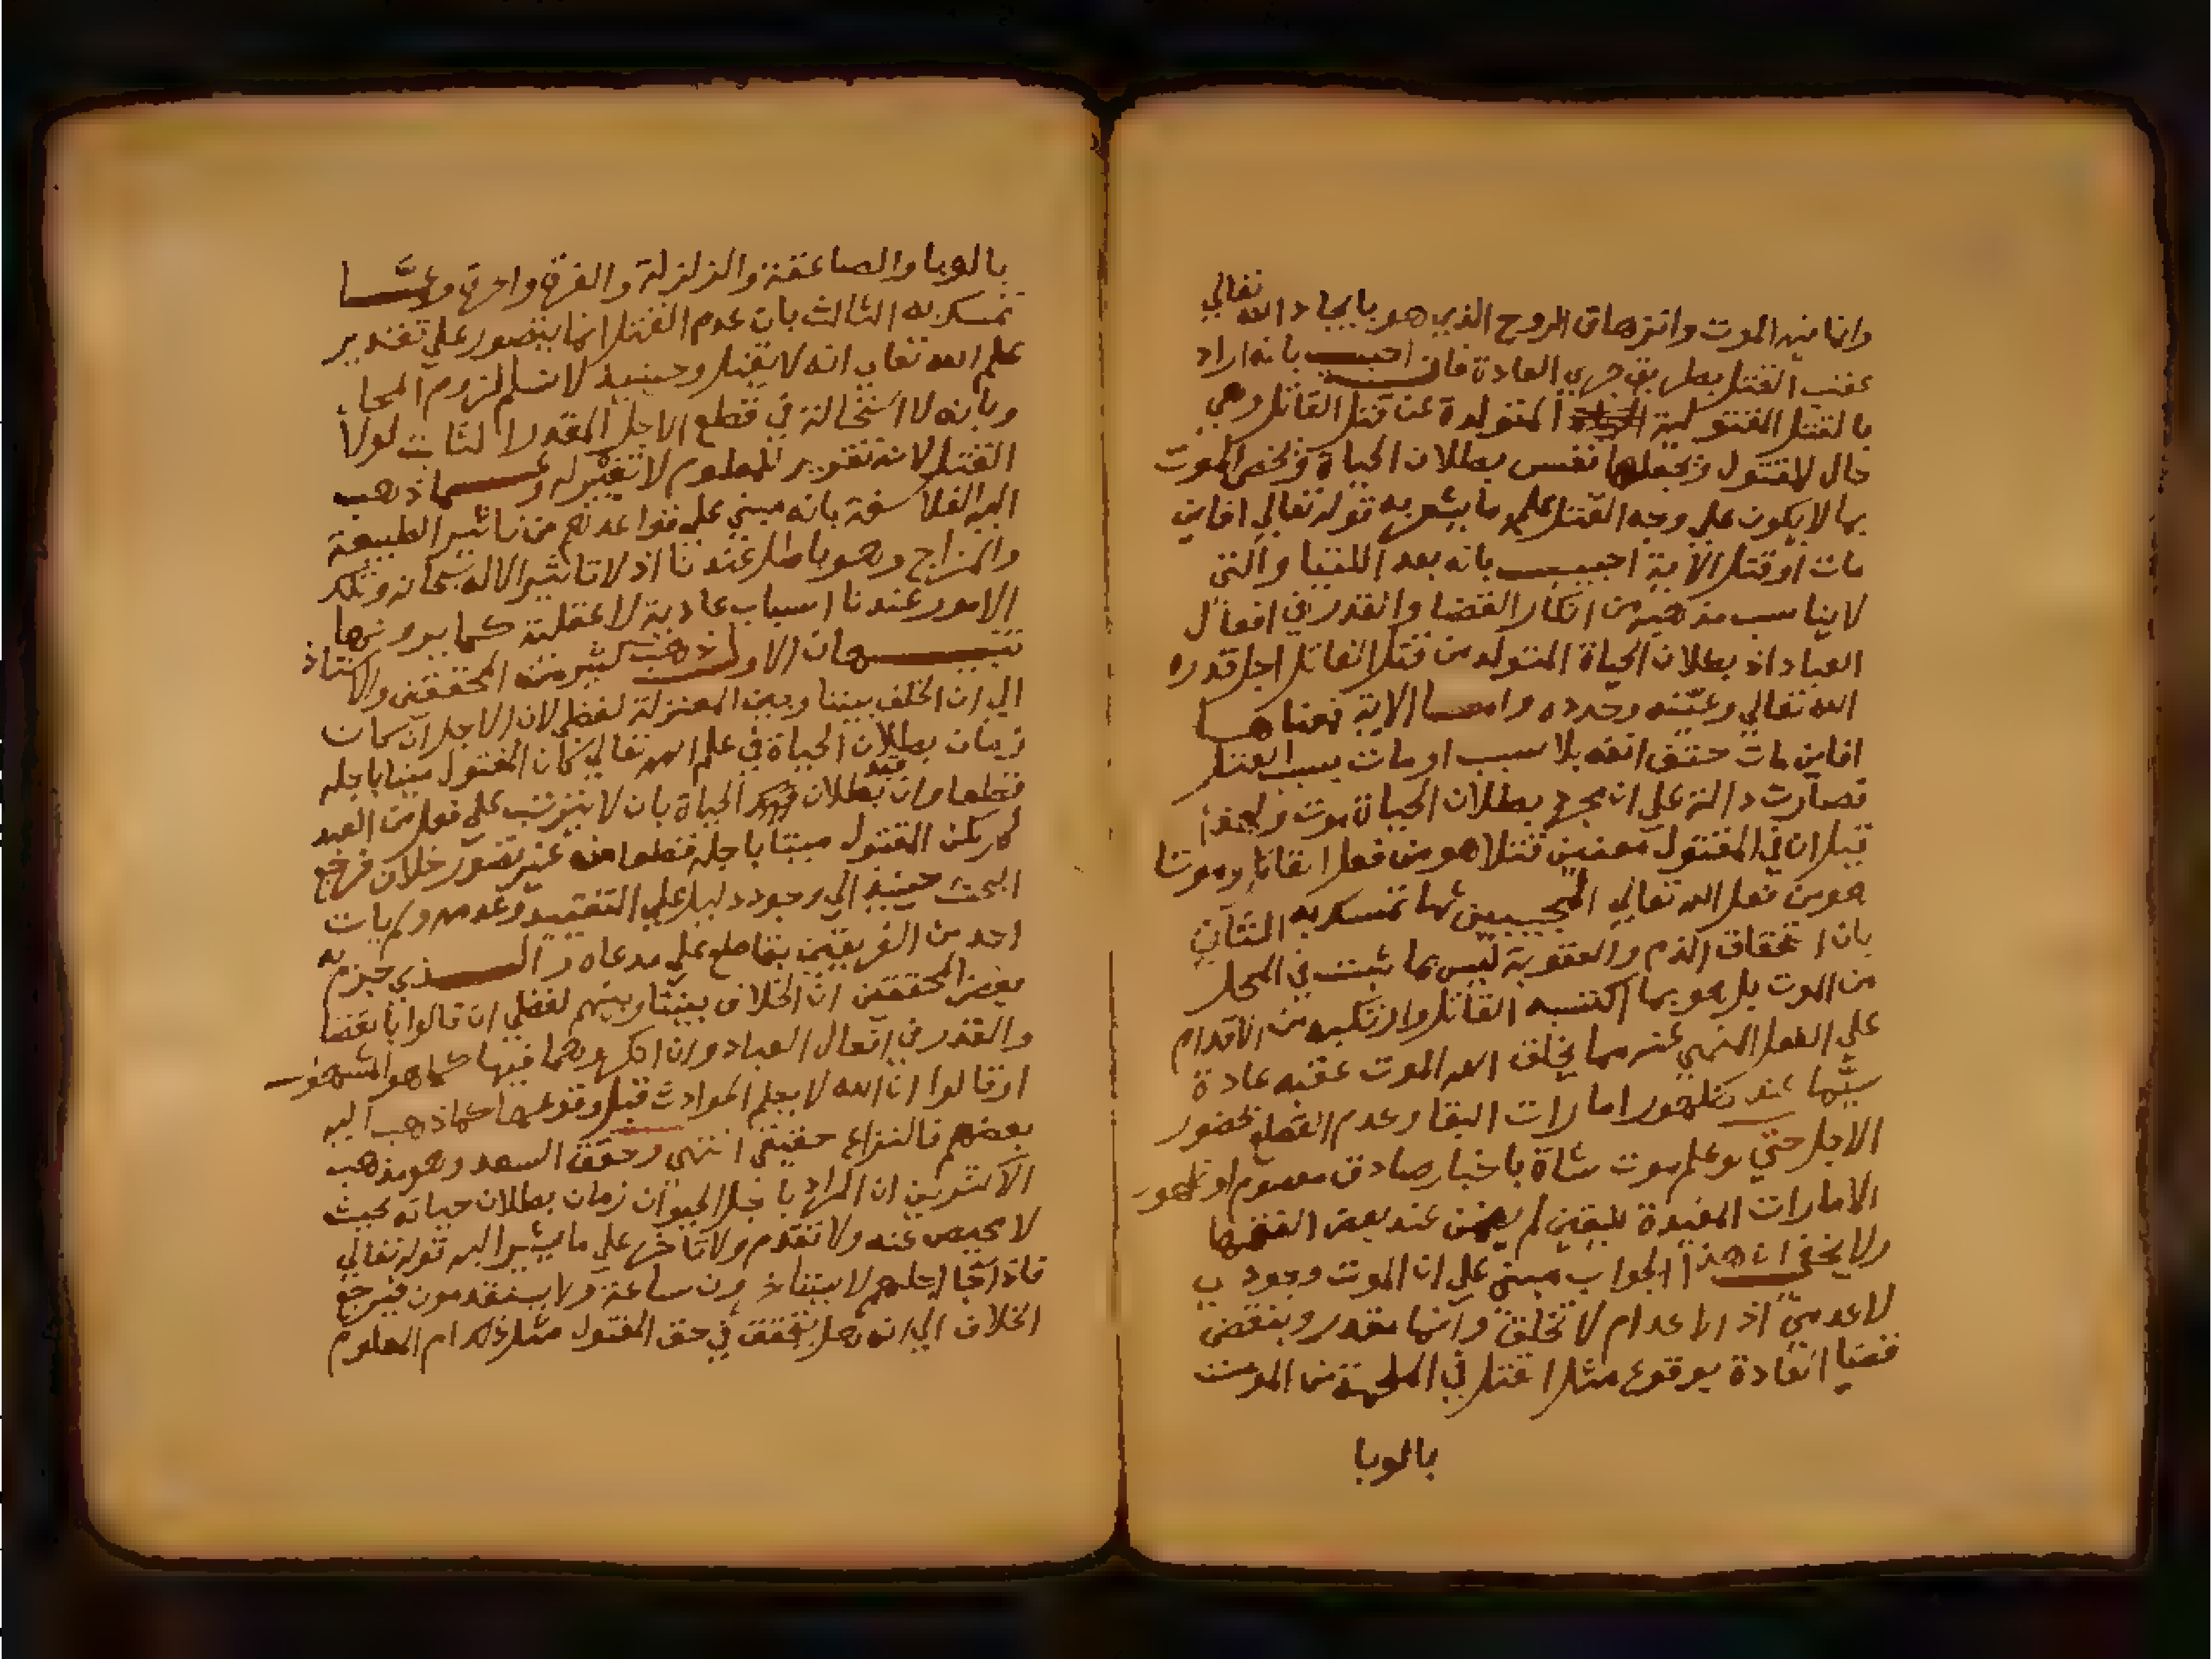 وانما فيه الموت وانزهاق الروح الذي هو بايجاد الله تعالي
عقب القتل بطريق جري العادة فان اجيب بانه اراد
بالقتل المقتولية المتولدة عن قتل القاتل وهي
حال للمقتول ونجعلها نفس بطلان الحياة ونخص الموت
بما لا يكون علي وجه القتل علي ما يشعر به قوله تعالي افاين
مات او قتل الاية اجيب بانه بعد
لا يناسب مذهبه من انكار القضا والقدر في افعال
العباد اذ بطلان الحياة المتولد من قتل القاتل اجل قدره
الله تعالي وعينه وحدده واما الاية فمعناها
افاين مات حتف انفه بلا سبب او مات بسبب القتل
فصارت دالة علي ان مجرد بطلان الحياة موت ولهذا
قيل ان في المقتول معنيين قتلا هو من فعل القاتل وموتا
هو من فعل الله تعالي تمسك به الثاني
بان استحقاق الذم والعقوبة ليس بما ثبت في المحل
من الموت بل هو بما اكتسبه القاتل وارتكبه من الاقدام
علي الفعل المنهي عنه مما يخلق الله الموت عقبه عادة
سيما عند ظهور امارات البقا وعدم القطع بحضور
الاجل حتي لو علم موت شاة باخبار صادق معصوم او ظهور
الامارات المفيدة لليقين لم يضمن عند بعض الفقها
ولا يخفي ان هذا الجواب مبني علي ان الموت وجودي
لا عدمي اذ الاعدام لا تخلق وانما تقدر وبنقض
قضيا العادة بوقوع مثل القتل في الملحمة من الموت
بالوبا
بالوبا والصاعقة والزلزلة والغرق واحرق وعما
تمسك به الثالث بان عدم القتل انما يتصور علي تقدير
علم الله تعالي انه لا يقتل وحينيذ لا نسلم لزوم المحال
وبانه لا استحالة في قطع الاجل المقدر الثابت لولا
القتل لانه تقرير للمعلوم لا تغيير له وعما ذهب
اليه الفلاسفة بانه مبني علي قواعدهم من تاثير الطبيعة
والمزاج وهو باطل عندنا اذ لا تاثير الا له سبحانه وتلك
الامور عندنا اسباب عادية لا عقلية كما يرونها
تنبيهان الاول ذهب كثير من المحققين والاستاذ
الي ان الخلف بيننا وبين المعتزلة لفظي لان الاجل ان كان
زمان بطلان الحياة في علم الله تعالي كان المقتول ميتا باجله
قطعا وان قيد بطلان الحياة بان لا يترتب علي فعل من العبد
لم يكن المقتول ميتا باجله قطعا من غير تصور خلاف فرجع
البحث حينيذ الي وجود دليل علي التقييد وعدمه ولم يات
احد من الفريقين بقاطع علي مدعاه والذي جزم به
بعض المحققين ان الخلاف بيننا وبينهم لفظي ان قالوا بالقضا
والقدر في افعال العباد وان انكروهما فيها كما هو المشهور
او قالوا ان الله لا يعلم الحوادث قبل وقوعها كما ذهب اليه
بعضهم فالنزاع حقيقي انتهي وحقق السعد وهو مذهب
الاكثرين ان المراد باجل الحيوان زمان بطلان حياته بحيث
لا محيص عنه ولا تقدم ولا تاخر علي ما يشير اليه قوله تعالي
فاذا جا اجلهم لا يستاخرون ساعة ولا يستقدمون فيرجع
الخلاف الي انه هل يتحقق في حق المقتول مثل ذلك ام المعلوم